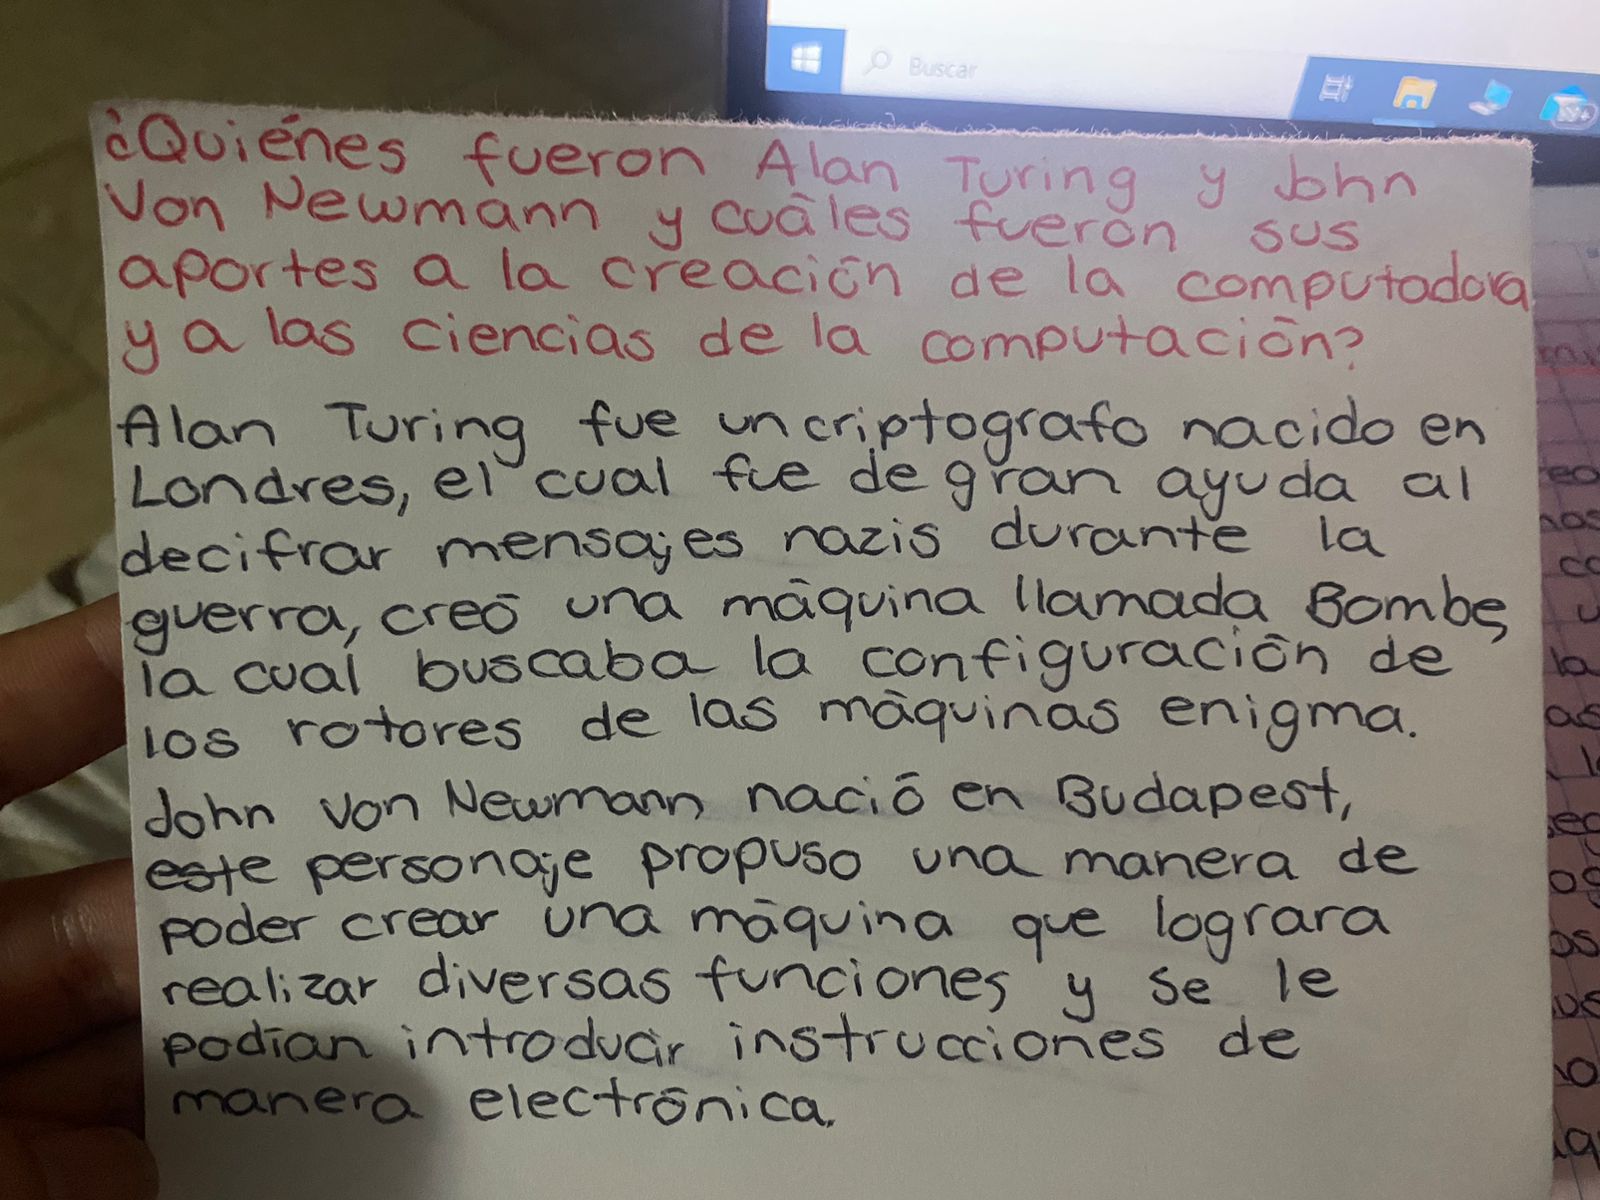 Buscar
¿Quiénes fueron Alan Turing y John
Von Newmann y cuáles fueron sus
aportes a la creación de la computadora
y a las ciencias de la computación?
Alan Turing fue un criptografo nacido en
Londres, el cual fue de gran ayuda al
decifrar mensajes nazis durante la
guerra, creó una máquina llamada Bombe,
la cual buscaba la configuración de
los rotores de las máquinas enigma.
John Von Newmann nació en Budapest,
este personaje propuso una manera de
poder crear una máquina que lograra
realizar diversas funciones y se le
podían introducir instrucciones de
manera electrónica.